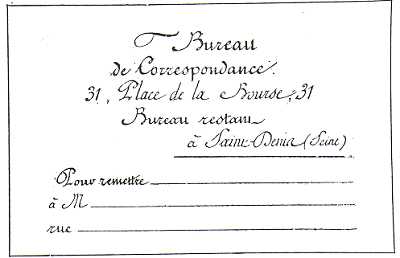 Bureau
de Correspondance.
31, Place de la Bourse, 31
Bureau restant
à Saint-Denis (Seine)
Pour remettre
à M
rue